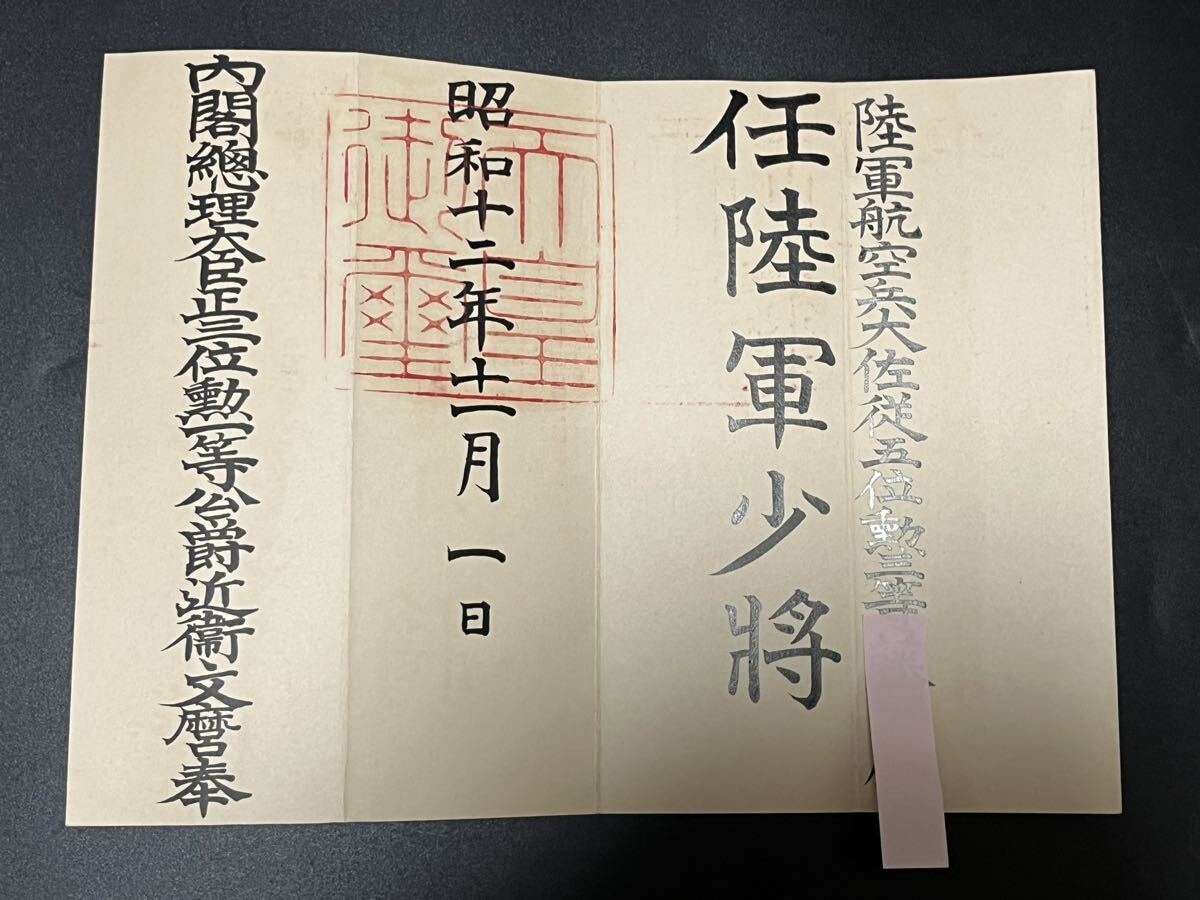 陸軍航空兵大佐従五位勲三等
任陸軍少將
昭和十二年十一月一日
天皇御璽
内閣總理大臣正三位勲一等公爵近衞文麿奉